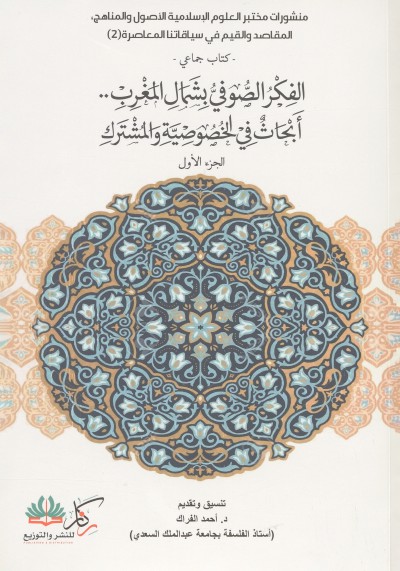 منشورات مختبر العلوم الإسلامية الأصول والمناهج،
المقاصد والقيم في سياقاتنا المعاصرة (2)
- كتاب جماعي -
الفِكْرُ الصُّوفيُّ بِشَمَالِ المَغْرِبِ ..
أَبْحَاثٌ فِي الخُصُوصِيَّةِ وَالمُشْتَرَكِ
الجزء الأول
تنسيق وتقديم
د. أحمد الفراك
(أستاذ الفلسفة بجامعة عبدالملك السعدي)
ركاز
للنشر والتوزيع